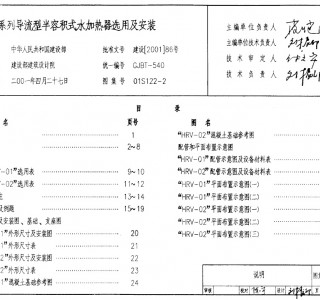 系列导流型半容积式水加热器选用及安装
中华人民共和国建设部 批准文号 建设[2001]86号
建设部建筑设计院 统一编号 GJBT-540
二00一年四月二十七日 图集号 01S122-2
主编单位负责人
主编单位技术负责人
技术审定人
设计负责人
目录
名 页号
1
2~8
-01"选用表 9~10
-02"选用表 11~12
13~14
及例题 15~19
及安装图、基础、支座图
1"外形尺寸及安装图 20
1"外形尺寸表 21
2"外形尺寸及安装图 22
2"外形尺寸表 23
1"混凝土基础参考图 24
目录
图名
"HRV-02"混凝土基础参考图
配管和平面布置示意图
"HRV-01"配管示意图及设备材料表
"HRV-02"配管示意图及设备材料表
"HRV-01"平面布置示意图(一)
"HRV-01"平面布置示意图(二)
"HRV-02"平面布置示意图(一)
"HRV-02"平面布置示意图(二)
"HRV-02"平面布置示意图(三)
说明 图集
审核 校对 设计